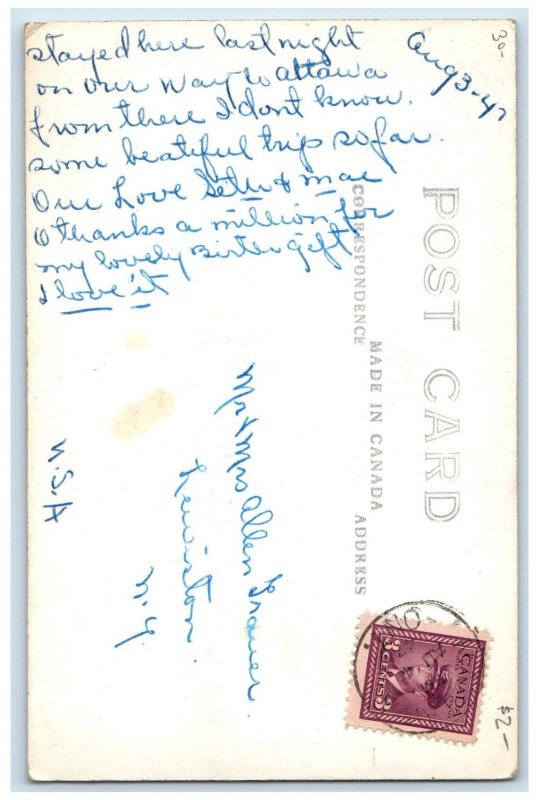 Aug 3-47
stayed here last night
on our way to ottawa
from there I dont know.
some beatiful trip so far.
Our Love Seth & Mae
O thanks a million for
my lovely Birth gift
I love it
POST CARD
CORRESPONDENCE
MADE IN CANADA
ADDRESS
Mr & Mrs Allen
Lewiston.
N.Y.
U.S.A
CANADA
3 CENTS 3
30-
$2-